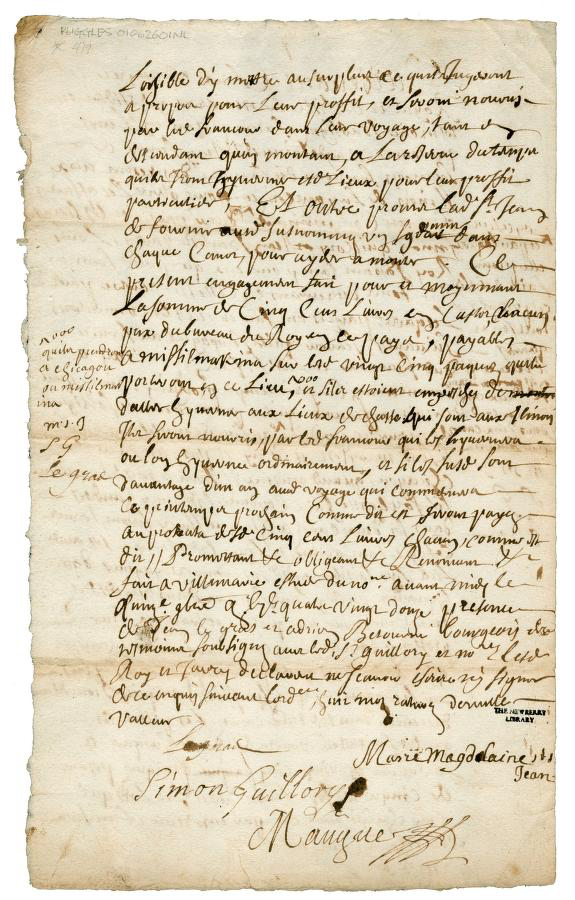 RUGGLES
Loisible d'y mettre au surplus ce quils Jugeront
a propos pour Leur proffit, et seront nouris
par les francois dans leur voyage, tant en
descendant quen montant, a La reserve du temps
quils Iront hyverner esd Lieux pour leur proffit
particulier, Et outre promet lad St Jean
de fournir
chaque Canot pour ayder a monter Ce
present engagement fait pour et moyennant
La somme de Cinq Cens Livres en Castor, chacun
prix du bureau de ce pays, payables
a missilmakina sur les vingt cinq paquets quils
porteront en ce Lieu, et sils estoient empesches
daller hyverner aux Lieux de chasse qui sont aux Ilinois
Ils seront nouris, par les francois qui les hyvernera
ou lon hyverne ordinairement, et sils fusd sont
davantage dun an aud voyage qui commencera
Ce printemps prochain Comme dit est seront payez
au prorata desd Cinq cens Livres chacun, comme
dit // Promettant &c obligeant &c Renoncant &c
fait a villemarie estude du nore avant midy le
quatre vingt douze presence
de Jean le gras et adrien Betourné bourgeois
tesmoins soubsignez avec lesd St guillory et nore Lesd
Roy et declarent ne scavoir escrire ny signer
de ce enquis suivant lord
valleur
quils prendront
a chicagou
ou missilmak
ina
m.s.J
S G
Le gras
THE NEWBERRY
LIBRARY
Legras
Marie Magdelaine st
Jean
Simon Guillory
Maugue